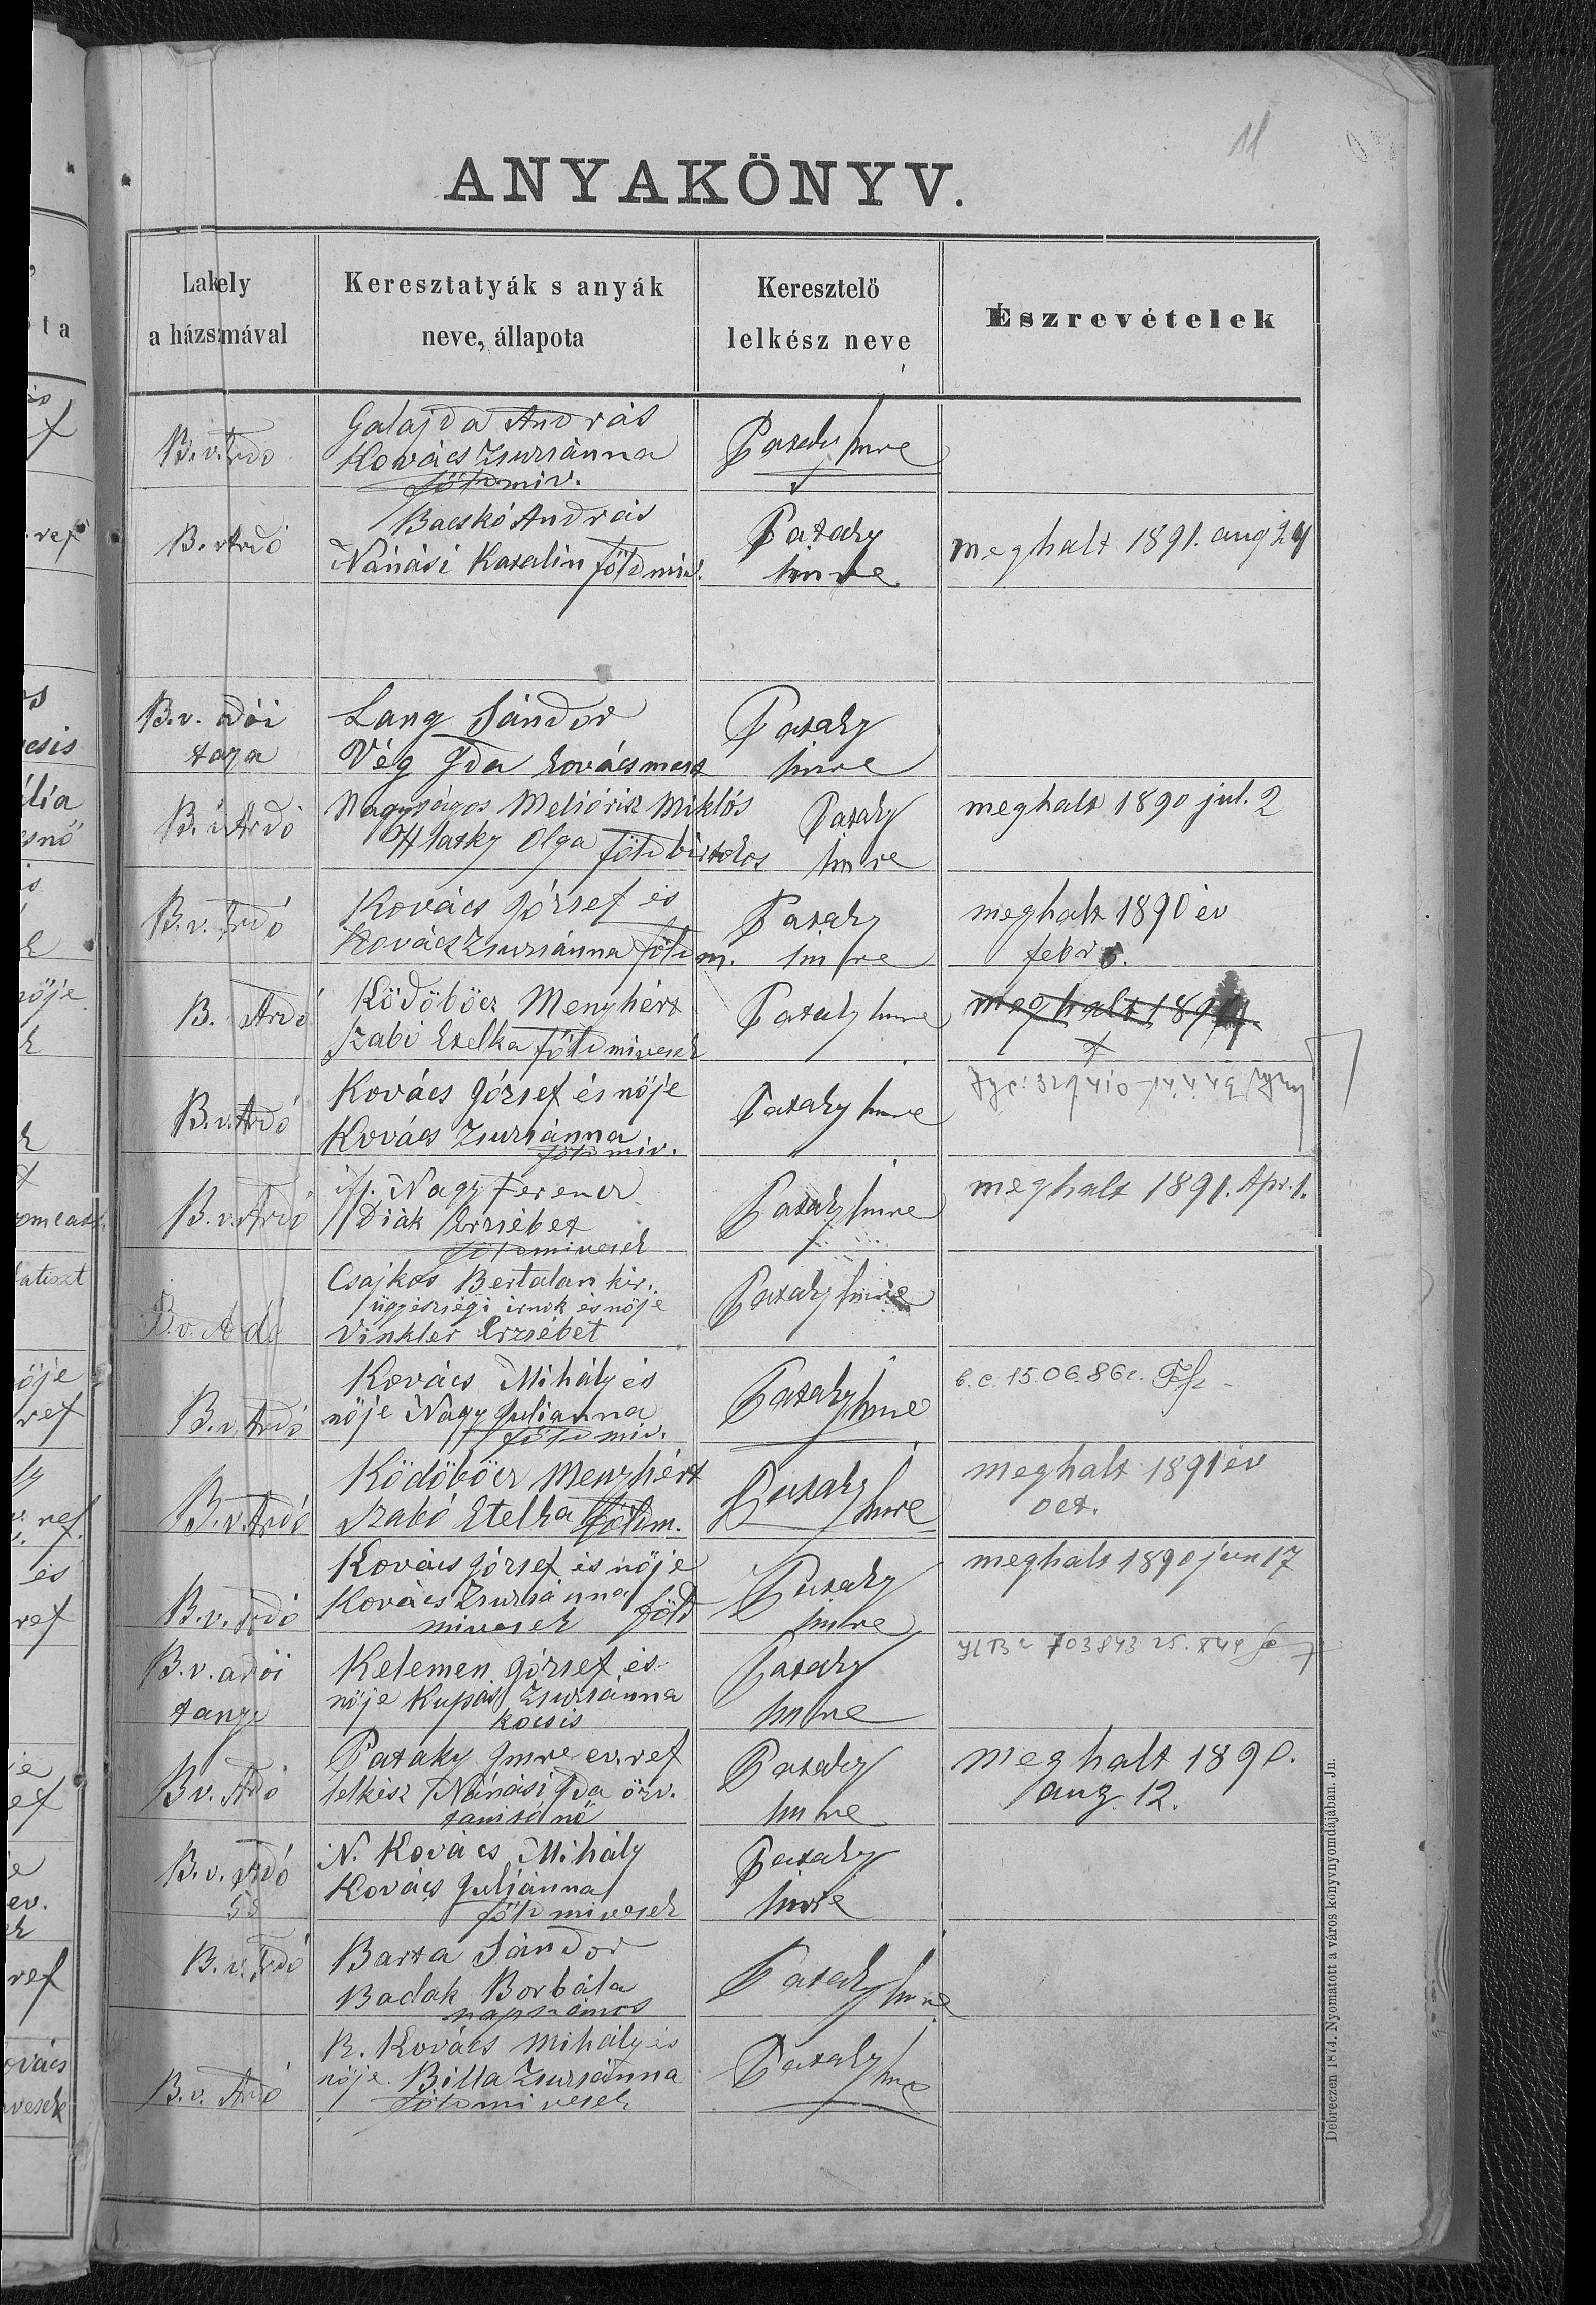 11
ANYAKÖNYV.
Lakely
a házszmával
Keresztatyák s anyák
neve, állapota
Keresztelö
lelkész neve
Észrevételek
B. v. Ardó
Galajda András
Kovács Zsuzsánna
földmiv.
Pataky Imre
B. v Ardó
Bacskó András
Nánási Katalin földmiv.
Pataky
Imre
meghalt 1891. aug 24
B. v. adói
taga
Lang Sándor
Vég Ida kovácsmest
Pataky
Imre
B. v Ardó
Nagyságos Melióris Miklós
Hlatky Olga földbirtokos
Pataky
Imre
meghalt 1890 jul. 2
B. v. Ardó
Kovács József és
Kovács Zsuzsánna földm.
Pataky
Imre
meghalt 1890 év
febr 5.
B. Ardó
Ködöböcz Menyhért
Szabó Etelka földmivesek
Pataky Imre
meghalt 189
B. v. Ardó
Kovács József és nöje
Kovács Zsuzsánna
földmiv.
Pataky Imre
B. v. Ardó
ifj. Nagy Ferencz
Diák Erzsébet
földmivesek
Pataky Imre
meghalt 1891. Apr. 1.
B. v. Adó
Csajkos Bertalan kir.
ügyészségi irnok és nöje
Vinkler Erzsébet
Pataky Imre
B. v. Ardó
Kovács Mihály és
nöje Nagy Julianna
földmiv.
Pataky Imre
b. c. 15.06.86 c.
B. v. Ardó
Ködöböcz Menyhért
Szabó Etelka földm.
Pataky
Imre
meghalt 1891 év
oct.
B. v. Ardó
Kovács József és nöje
Kovács Zsuzsánna föld
mivesek
Pataky
Imre
meghalt 1890 jun 17
B. v. adói
tanya
Kelemen József és
nöje Kupás Zsuzsánna
kocsis
Pataky
Imre
703843
B v. Ardó
Pataky Imre ev. ref
lelkész Nánási Ida özv.
tanitónö
Pataky
Imre
meghalt 1890.
aug. 12.
B. v. Ardó
N. Kovács Mihály
Kovács Juliánna
földmivesek
Pataky
Imre
B. v. Ardó
Barta Sándor
Badak Borbála
napszámos
Pataky Imre
B. v. Ardó
B. Kovács Mihály és
nöje Billa Zsuzsánna
földmivesek
Pataky Imre
Debreczen 1874. Nyomatott a város könyvnyomdájában. Jn.